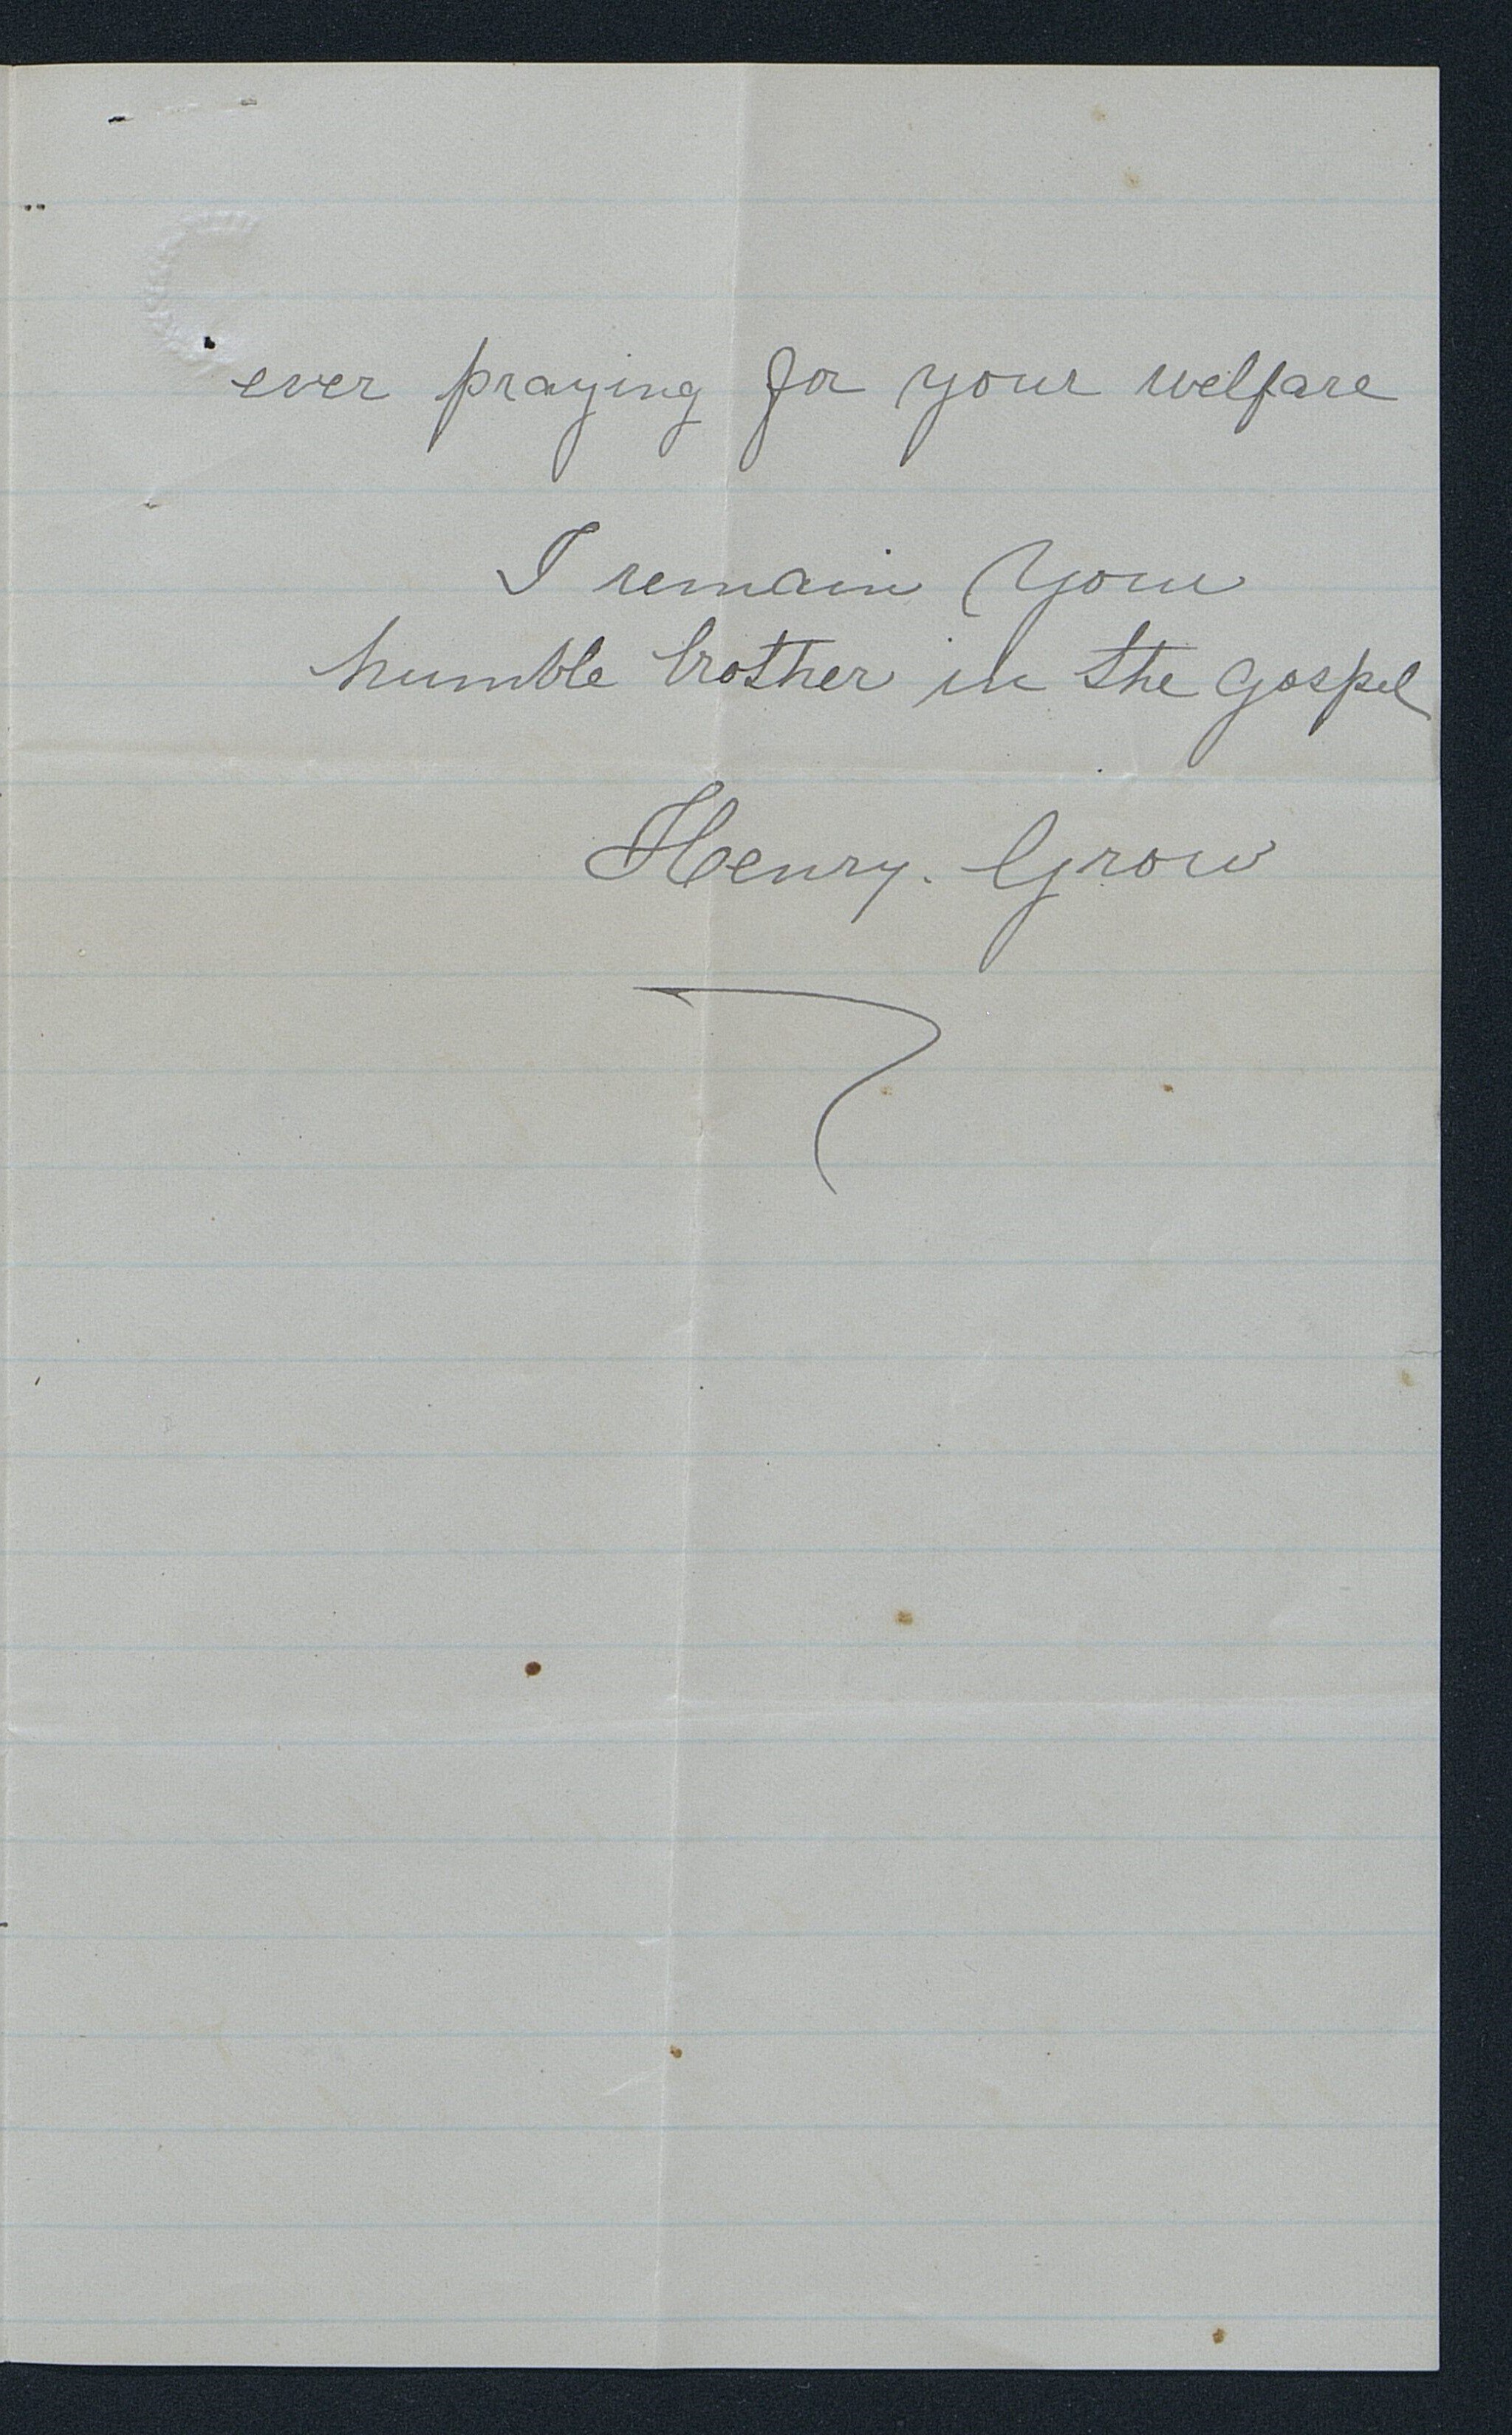 ever praying for your welfare
I remain Your
humble brother in the gospel
Henry. Grow